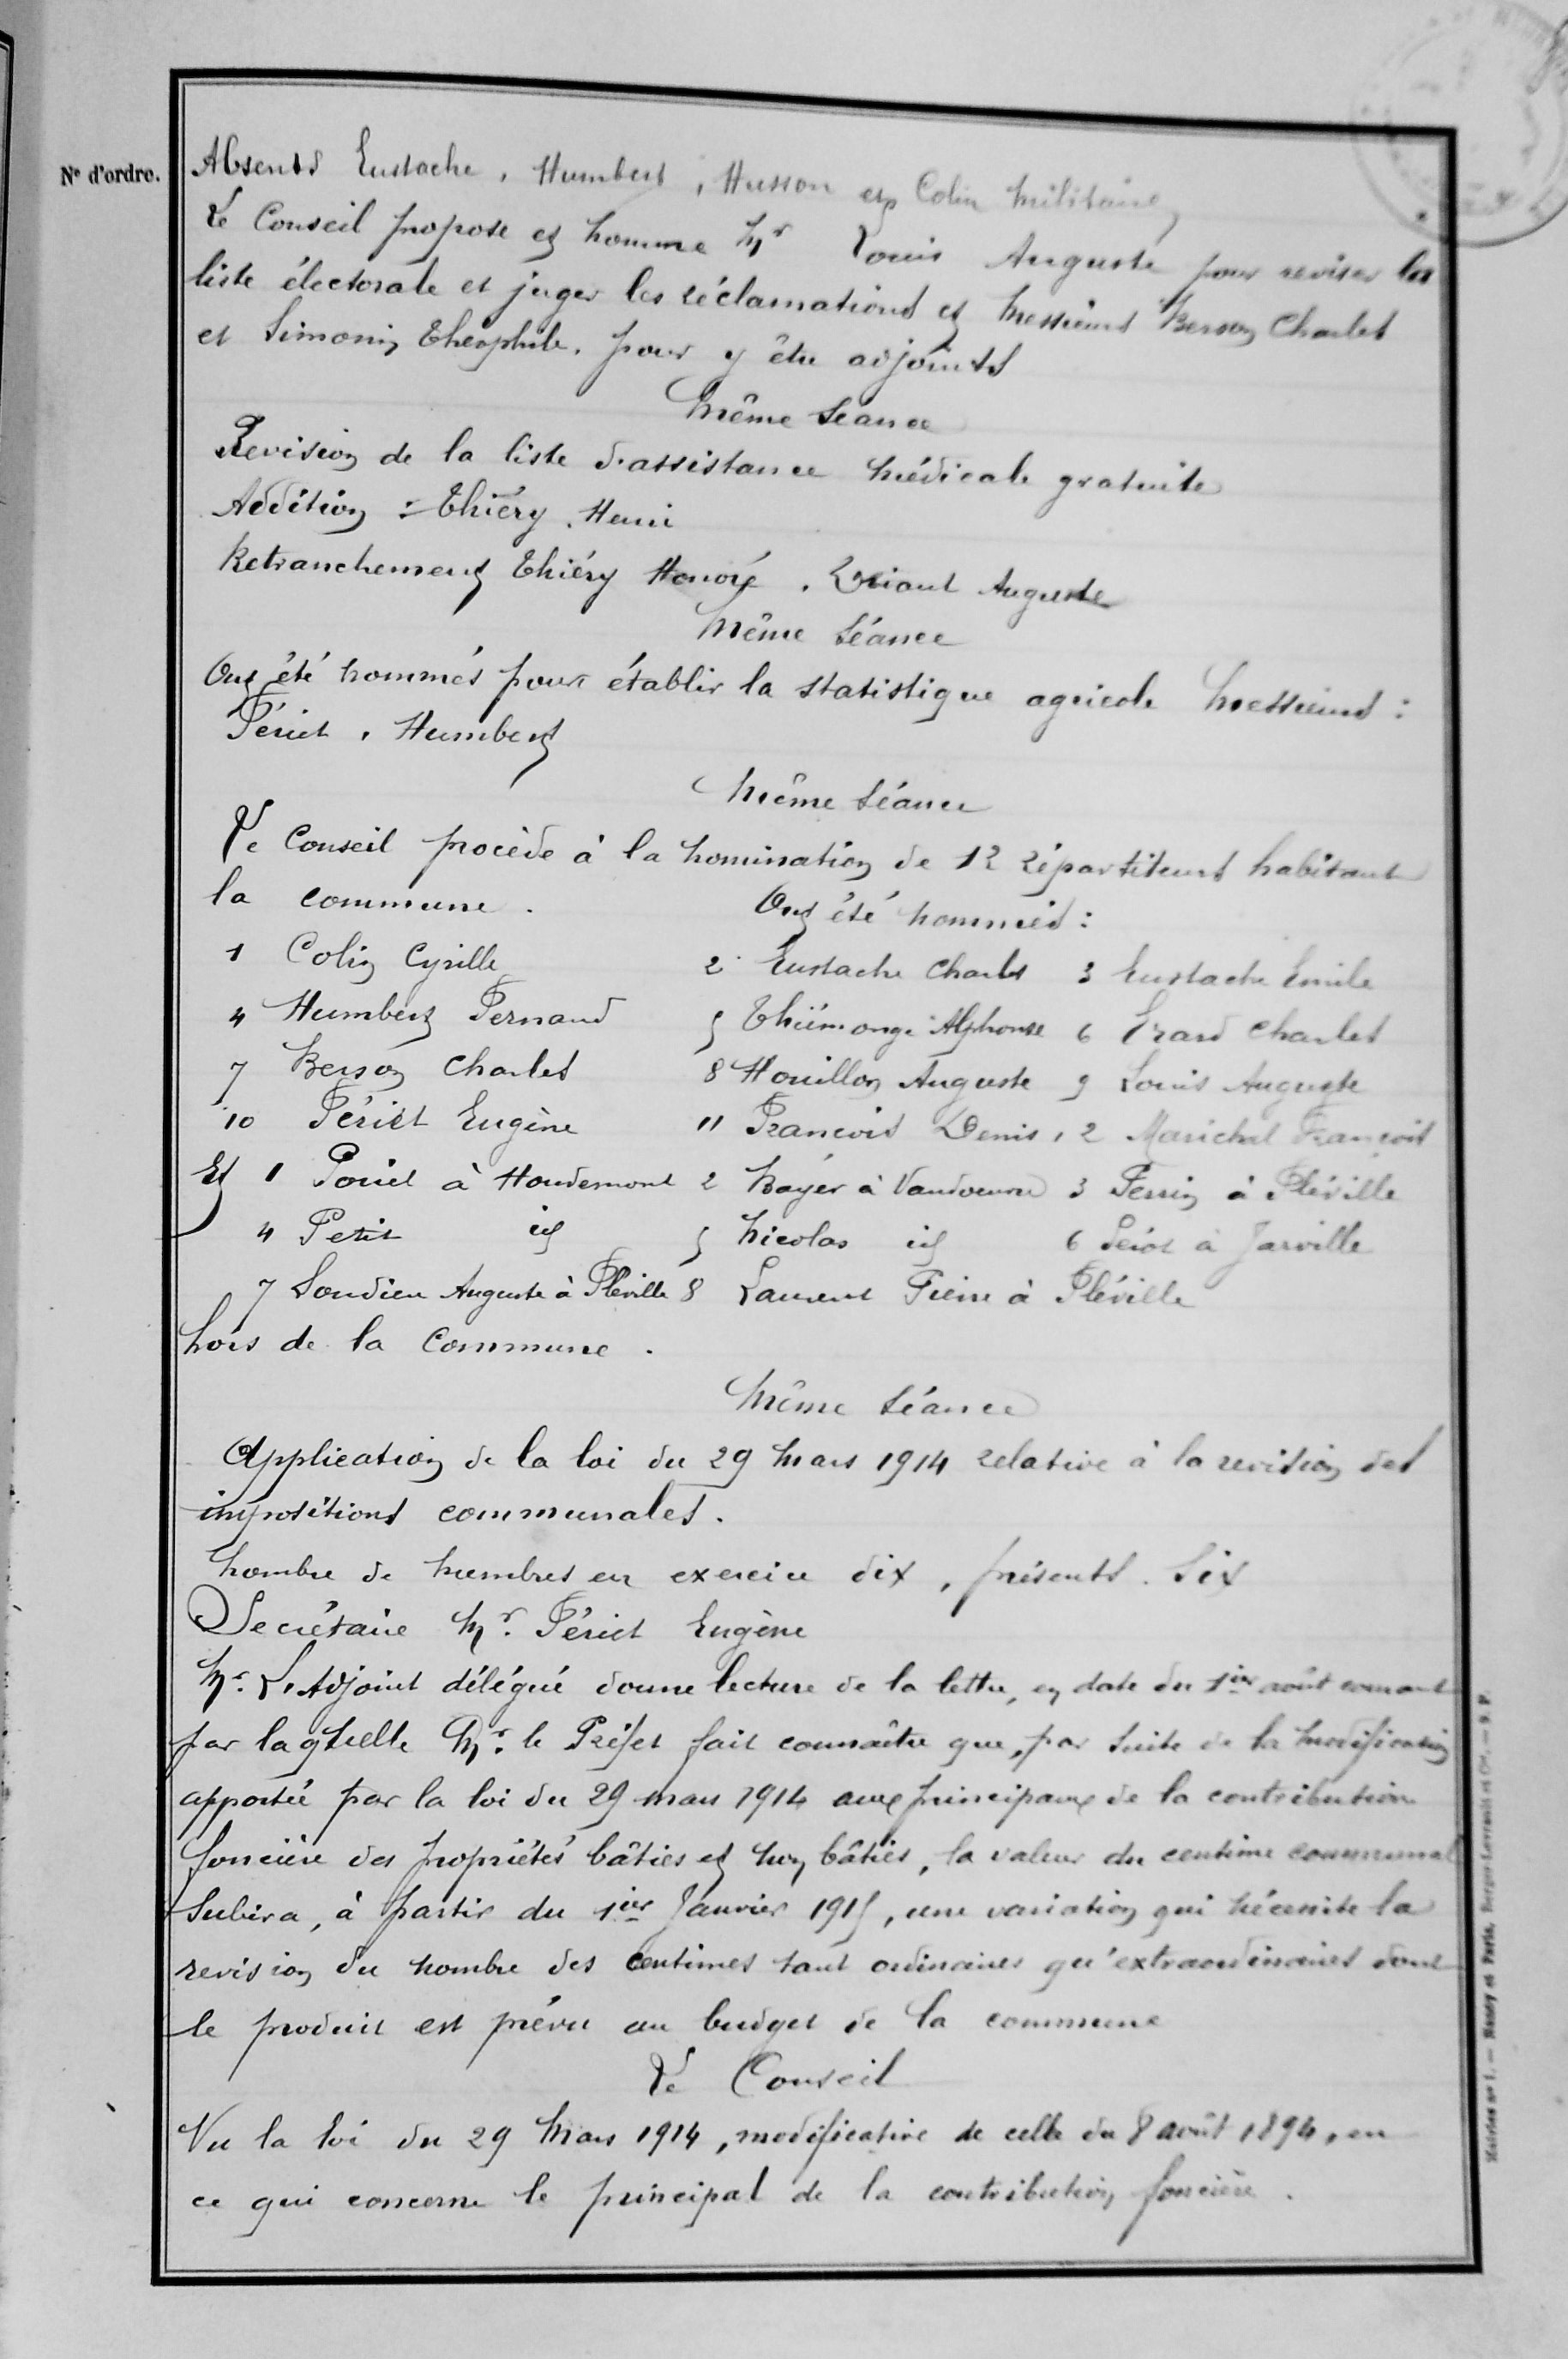 N° d'ordre.
Absents Eustache, Humbert, Husson et Colin militaires
Le Conseil propose et nomme Mr Louis Auguste pour reviser la
liste électorale et juger les réclamations et Messieurs Berson Charles
et Simonin Théophile, pour y être adjoints
Même Séance
Revision de la liste d'assistance médicale gratuite
Addition : Thiéry Henri
Retranchement Thiéry Honoré, Auguste
Même Séance
Ont été nommés pour établir la statistique agricole Messieurs :
Périet, Humbert
Même Séance
Le Conseil procède à la nomination de 12 répartiteurs habitant
la commune. Ont été nommés :
1 Colin Cyrille 2 Eustache Charles 3 Eustache Emile
4 Humbert Fernand 5 Thiémonge Alphonse 6 Erard Charles
7 Berson Charles 8 Houillon Auguste 9 Louis Auguste
10 Périet Eugène 11 François Denis 12 Marichal François
Et 1 à Houdemont 2 Bayer à Vandoeuvre 3 Perrin à Fléville
4 Petit id 5 Nicolas id 6 à Jarville
7 Soudieu Auguste à Fléville 8 Laurent Pierre à Fléville
hors de la Commune.
Même Séance
Application de la loi du 29 Mars 1914 relative à la revision des
impositions communales.
Nombre de membres en exercice dix, présents. Six
Secrétaire Mr. Périet Eugène
Mr. L'Adjoint délégué donne lecture de la lettre, en date du 1ier août courant
par laquelle Mr. le Préfet fait connaître que, par suite de la modification
apportée par la loi du 29 mars 1914 aux principaux de la contribution
foncière des propriétés bâties et non bâties, la valeur du centime communal
subira, à partir du 1ier Janvier 1915, une variation qui nécessite la
revision du nombre des centimes tant ordinaires qu'extraordinaires dont
le produit est prévu au budget de la commune
Le Conseil
Vu la loi du 29 Mars 1914, modificative de celle du 8 août 1894, en
ce qui concerne le principal de la contribution foncière.
Nancy et Paris, Berger-Levrault et Cie.